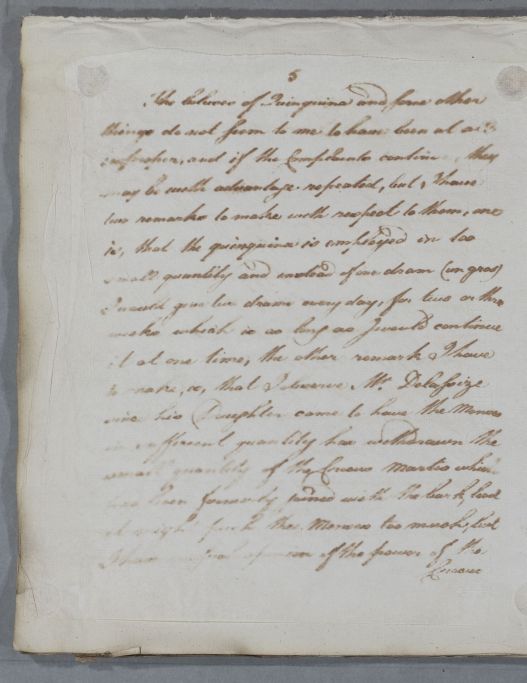 5
The believer of Quinquina and some other
things do not seem to me to have been at a
improper, and if the Complaints continue, they
may be with advantage repeated, but, I have
two remarks to make with respect to them, one
is, that the quinquina is employed in too
small quantity and instead of one dram (un gros)
I would give two drams every day, for two or three
weeks which is as long as I would continue
it at one time, the other remark I have
to make, is, that I observe Mr Delassize
since his Daughter came to have the Menses
in sufficient quantity has withdrawn the
small quantity of the Crocus Martis which
had been formerly joined with the bark, lest
it might push the Menses too much, but
I have no opinion of the power of the
Crocus